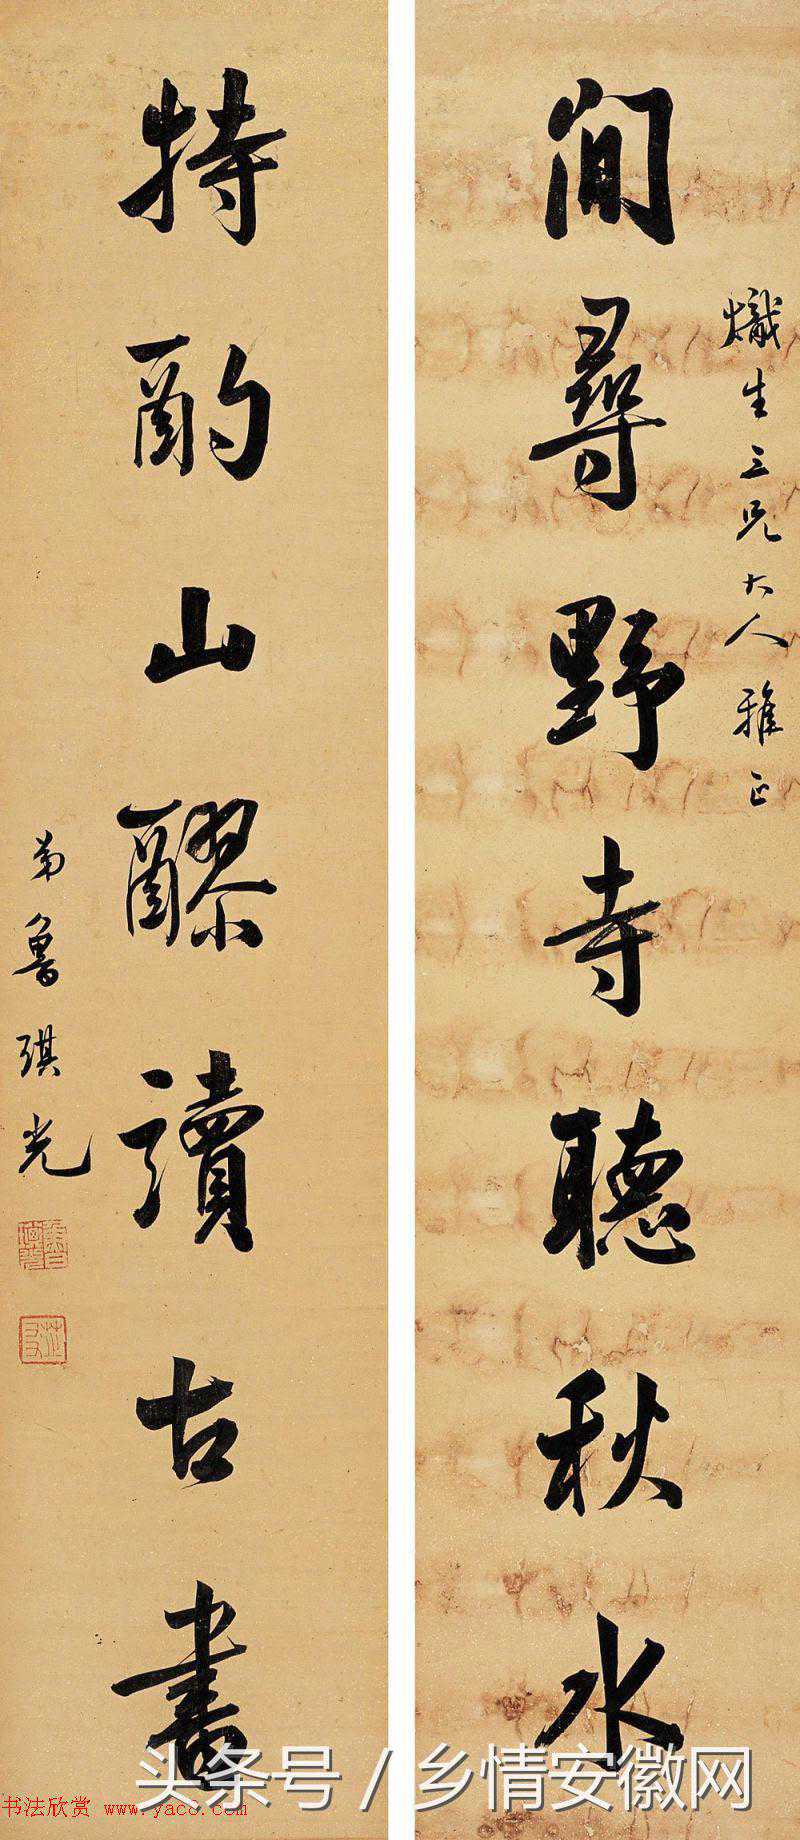 熾生三兄大人雅正
閒尋野寺聽秋水
特酌山醪讀古書
弟魯琪光
芝友
头条号 / 乡情安徽网
书法欣赏 www.yac8.com